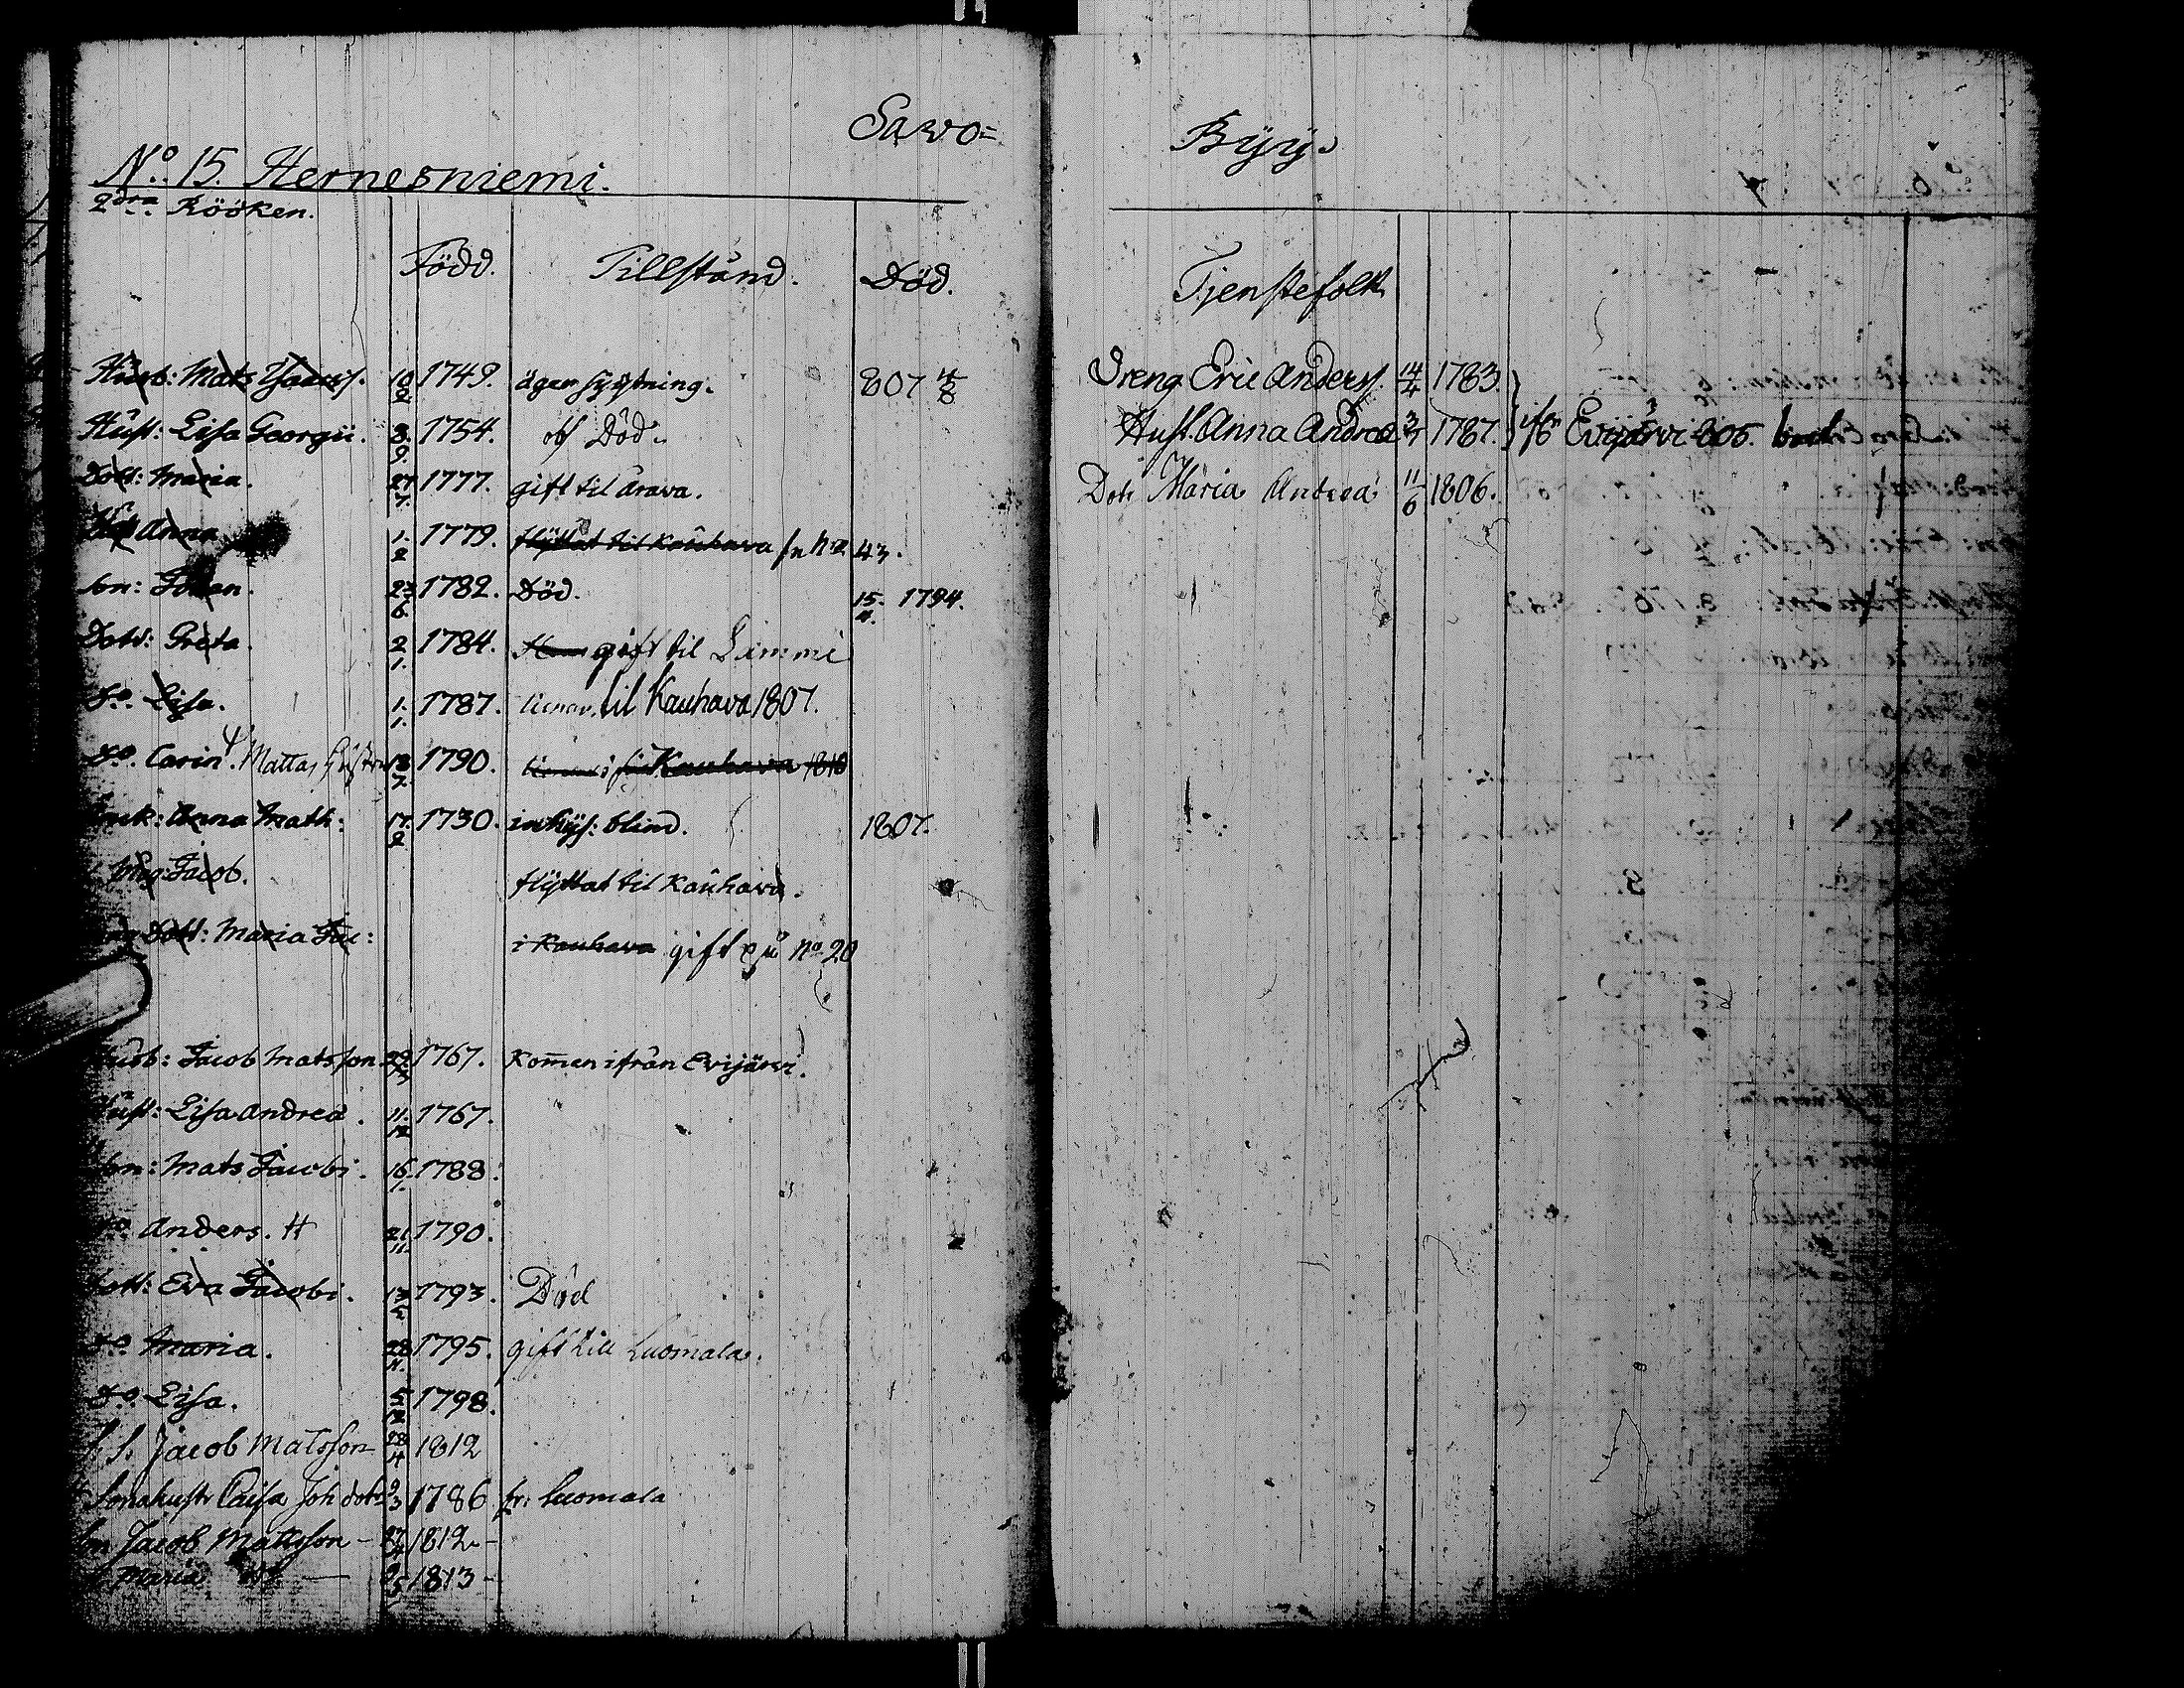 Sawo=
No. 15. Hernesniemi.
2dra Rööken.
Född. Tillstånd. Död.
Husb: Mats Isaacss. 10/2 1749. äger sytning. 807 4/8
Hust: Lisa Georgii. 8/9. 1754. Död.
Dott: Maria. 27/7. 1777. gift til Arava.
Anna 1./2 1779. flyttat til Kauhava No 43.
Son: Johan. 23/6. 1782. Död. 15. 1794.
Dott: Greta. 2/1. 1784. gift til Lammi
Do. Lisa. 1./1. 1787. til Kauhava 1807.
Do. Carin. Mattas 1790. Kauhava 1810
Anna Math: 17./2 1730. inhys: blind. 1807.
Jacob. flyttat til Kauhava.
Dott: Maria Jac: i Kauhava gift på No 20
Husb: Jacob Matsson. 1767. Komen ifrån Evijärvi.
Hust: Lisa Andreæ. 11./12 1767.
Son: Mats Jacobi. 16./1. 1788.
Do Anders. 21/11. 1790.
Dott: Eva Jacobi. 13/5 1793. Död
Do Maria. 28/11. 1795. gift till Luomala.
Do. Lisa. 5/12 1798.
Jacob Matsson 28/4 1812
Sonahustr Caisa Joh dotr 9/3 1786 fr: Luomala
Son Jacob Mattsson - 27/4 1812. -
Maria — 1813 -
Byy.
Tjenstefolk
Dreng Eric Anderss. 14/4 1783.
Hust. Anna Andreæ 3/7 1787. Evijärvi 805.
Dotr Maria Andreæ 11/6 1806.